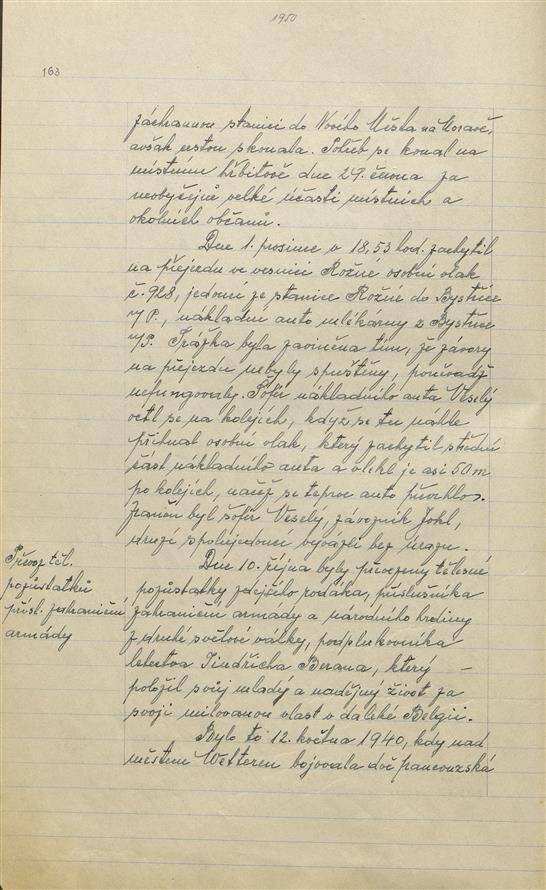 1950
163
záchrannou stanicí do Nového Města na Moravě,
avšak cestou skonala. Pohřeb se konal na
místním hřbitově dne 29. června za
neobyčejně velké účasti místních a
okolních občanů.
Dne 1. prosince v 18,53 hod. zachytil
na přejezdu ve vesnici Rožné osobní vlak
č. 928, jedoucí ze stanice Rožné do Bystřice
n/P., nákladní auto mlékárny z Bystřice
n/P. Srážka byla zaviněna tím, že závory
na přejezdu nebyly spuštěny, poněvadž
nefungovaly. Šofér nákladního auta Veselý
octl se na kolejích, když se tu náhle
přihnal osobní vlak, který zachytil střední
část nákladního auta a vlekl je asi 50 m
po kolejích, načež se teprve auto převrhlo.
Zraněn byl šofér Veselý, závozník Johl,
druzí spolujezdci vyvázli bez úrazu.
Převoz těl.
pozůstatků
přísl. zahraniční
armády
Dne 10. října byly převezeny tělesné
pozůstatky zdejšího rodáka, příslušníka
zahraniční armády a národního hrdiny
z druhé světové války, podplukovníka
letectva Jindřicha Berana, který –
položil svůj mladý a nadějný život za
svoji milovanou vlast v daleké Belgii.
Bylo to 12. května 1940, kdy nad
městem Wetteren bojovala dvě francouzská